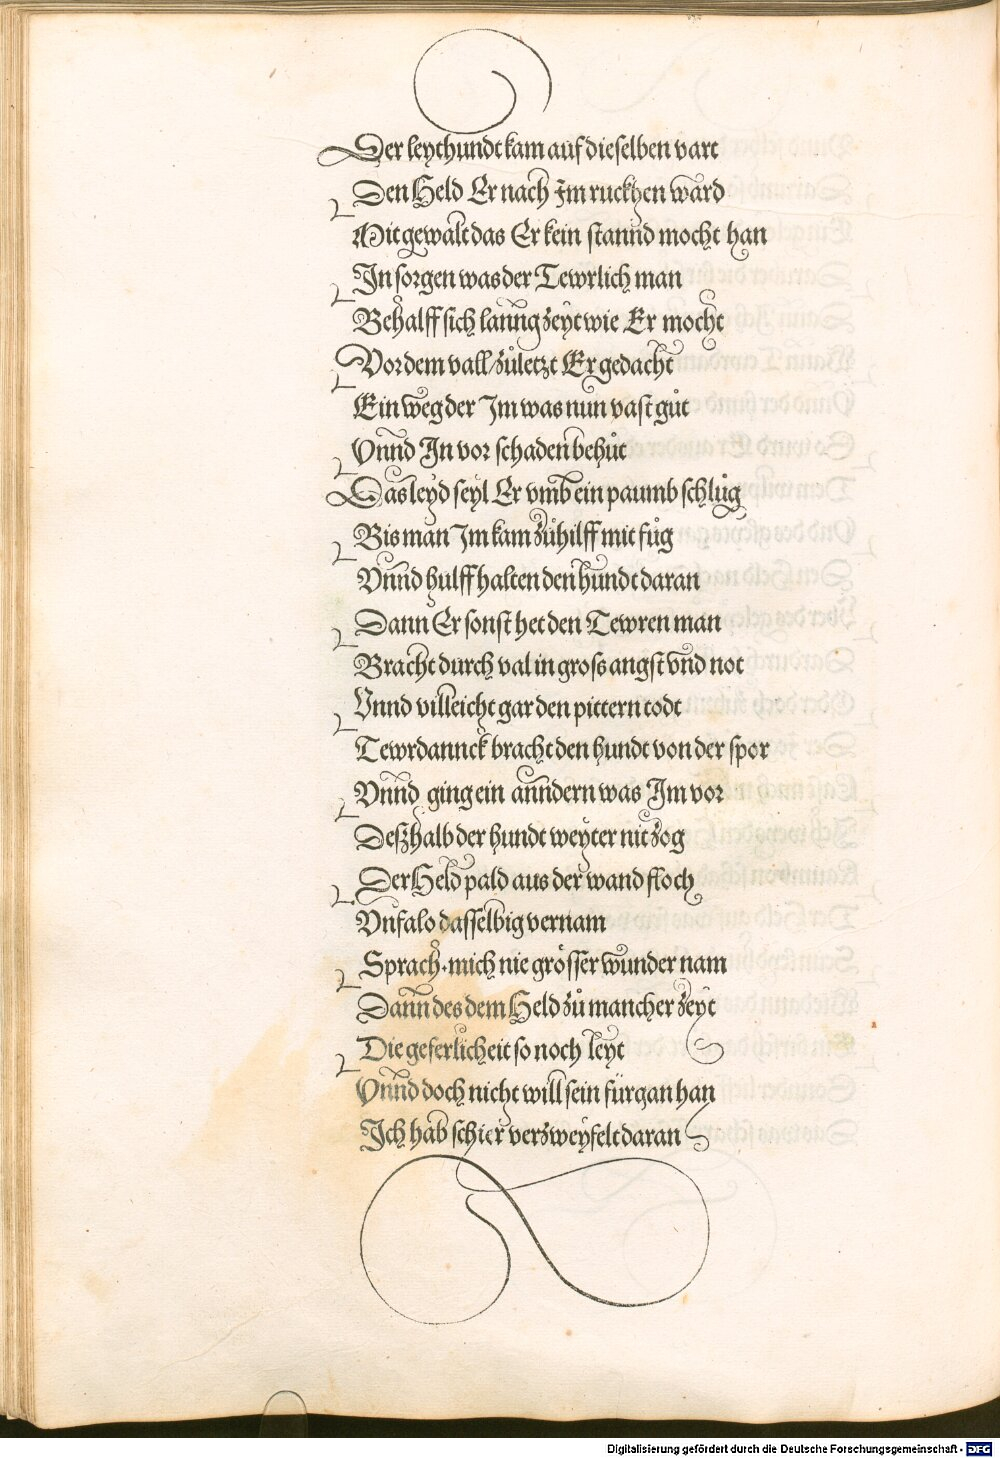 Der leythundt kam auf dieselben vart
Den Held Er nach Im ruckhen ward
Mit gewalt das Er kein stannd mocht han
In sorgen was der Tewrlich man
Behalff sich lanng zeyt wie Er mocht
Vor dem vall / zůletzt Er gedacht
Ein weg der Im was nun vast gůt
Vnnd In vor schaden behůt
Das leyd seyl Er vmb ein paumb schlůg
Bis man Im kam zůhilff mit fůg
Vnnd hulff halten den hundt daran
Dann Er sonst het den Tewren man
Bracht durch val in gross angst vnd not
Vnnd villeicht gar den pittern todt
Tewrdannck bracht den hundt von der spor
Vnnd ging ein anndern was Im vor
Deßhalb der hundt weyter nit zog
Der Held pald aus der wand floch
Vnfalo dasselbig vernam
Sprach. mich nie grösser wunder nam
Dann des dem Held zů mancher zeyt
Die geferlicheit so noch leyt
Vnnd doch nicht will sein fürgan han
Ich hab schier verzweyfelt daran
Digitalisierung gefördert durch die Deutsche Forschungsgemeinschaft - DFG